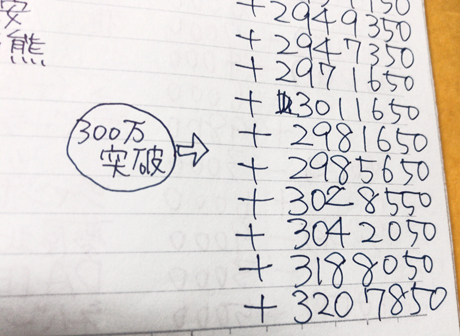 安
熊
300万
突破
+2949350
+2947350
+2971650
+3011650
+2981650
+2985650
+3028550
+3042050
+3188050
+3207850